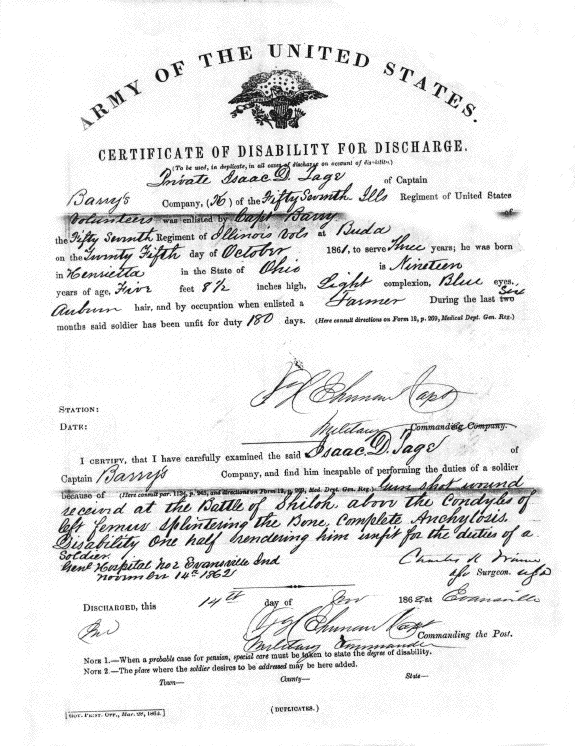 ARMY OF THE UNITED STATES.
CERTIFICATE OF DISABILITY FOR DISCHARGE.
(To be used, in duplicate, in all cases of discharge on account of disability.)
Private Isaac D. Tage of Captain
Barry's Company, (K) of the Fifty Seventh Ills Regiment of United States
Volunteers was enlisted by Capt Barry of
the Fifty Seventh Regiment of Illinois Vols at Buda
on the Twenty Fifth day of October 1861, to serve Three years; he was born
in Henrietta in the State of Ohio is Nineteen
years of age, Five feet 8½ inches high, Light complexion, Blue eyes,
Auburn hair, and by occupation when enlisted a Farmer During the last two Six
months said soldier has been unfit for duty 180 days. (Here consult directions on Form 12, p. 269, Medical Dept. Gen. Reg.)
Capt
STATION:
DATE: Military Commanding Company.
I CERTIFY, that I have carefully examined the said Isaac D. Tage of
Captain Barry's Company, and find him incapable of performing the duties of a soldier
because of (Here consult par. 1134, p. 243, and directions on Form 12, p. 269, Med. Dept. Gen. Reg.) Gun shot wound
received at the Battle of Shiloh above the Condyles of
left femur splintering the Bone. Complete Anchylosis.
Disability One half rendering him unfit for the duties of a
Soldier.
Genl Hospital No 2 Evansville Ind
November 14th 1862
Charles H
Surgeon.
DISCHARGED, this 14th day of Nov 1862 at Evansville
Ind
Capt
Commanding the Post.
Military Commander
NOTE 1.—When a probable case for pension, special care must be taken to state the degree of disability.
NOTE 2.—The place where the soldier desires to be addressed may be here added.
Town— County— State—
(DUPLICATES.)